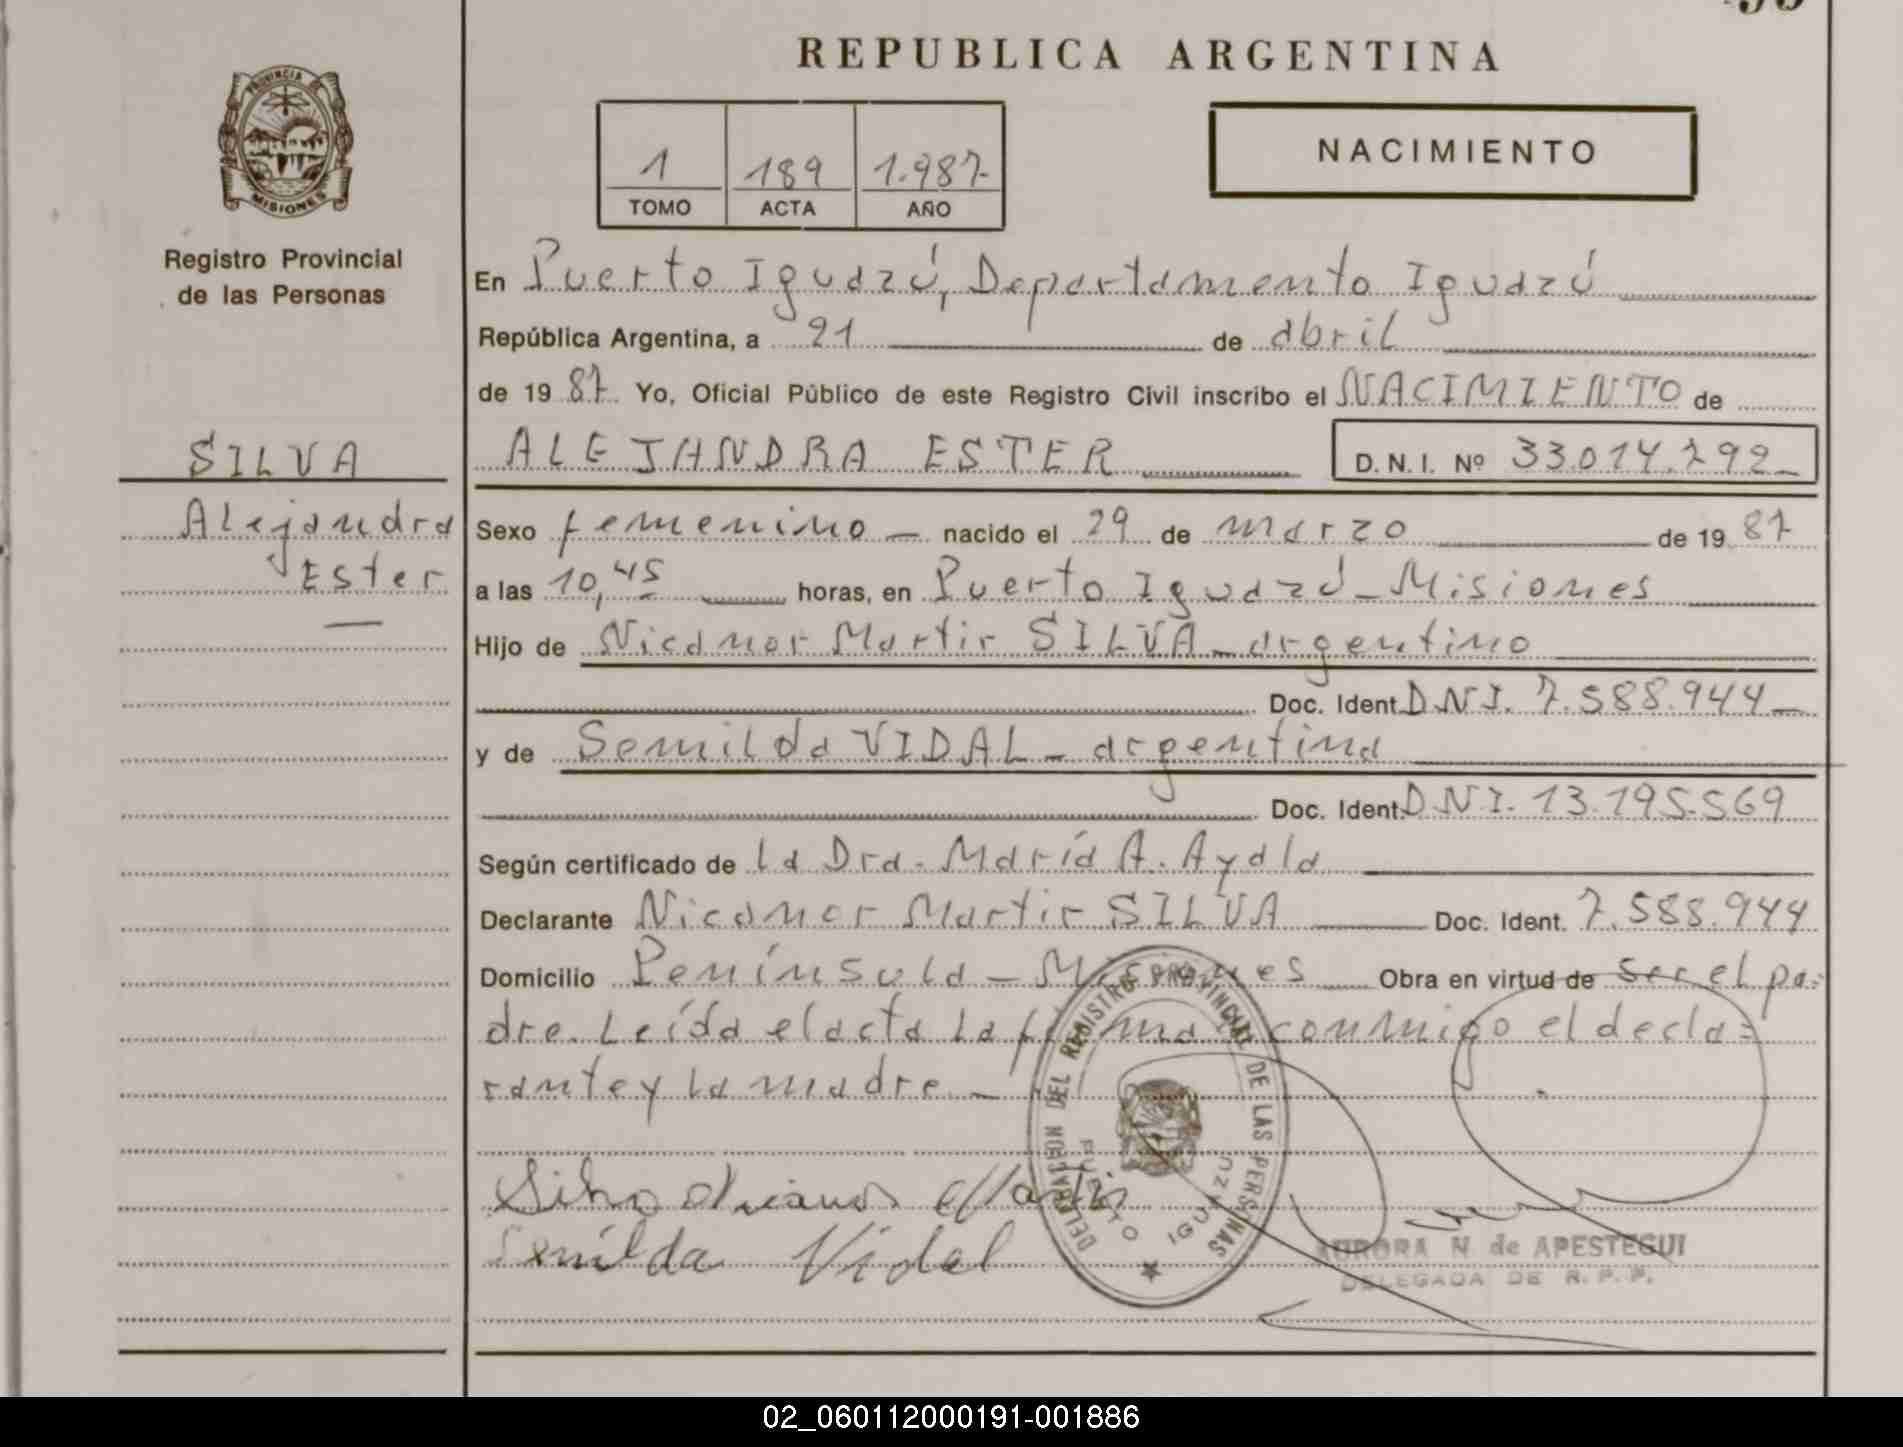 REPUBLICA ARGENTINA
PROVINCIA DE
MISIONES
Registro Provincial
de las Personas
1 189 1.987-
TOMO ACTA AÑO
NACIMIENTO
En Puerto Iguazú, Departamento Iguazú
República Argentina, a 21 de abril
de 19 87. Yo, Oficial Público de este Registro Civil inscribo el NACIMIENTO de
SILVA
ALEJANDRA ESTER D.N.I. Nº 33.014.792-
Alejandra
Ester
Sexo femenino - nacido el 29 de marzo de 19 87
a las 10,45 horas, en Puerto Iguazú - Misiones
Hijo de Nicanor Martir SILVA - argentino
Doc. Ident. D.N.I. 7.588.944-
y de Semilda VIDAL - argentina
Doc. Ident. D.N.I. 13.195.569
Según certificado de la Dra. María A. Ayala
Declarante Nicanor Martir SILVA Doc. Ident. 7.588.944
Domicilio Península - Misiones Obra en virtud de ser el pa=
dre. Leída el acta la firma conmigo el decla=
rante y la madre. -
DELEGACION DEL REGISTRO PROVINCIAL DE LAS PERSONAS
PUERTO IGUAZU
Vidal
AURORA N. de APESTEGUI
DELEGADA DE R. P. P.
02_060112000191-001886